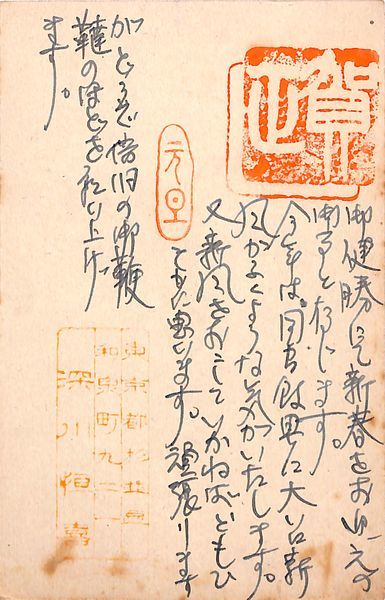 賀正
御健勝にて新春をお迎えの
御事と存じます。
今年は、に大いに新
風がふくような気がいたします。
又新風をおこしていかねばともひ
そかに思います。頑張ります
がどうぞ倍旧の御鞭
韃のほどを願い上げ
ます。
元旦
東京都杉並区
和泉町九二一
深川恒喜